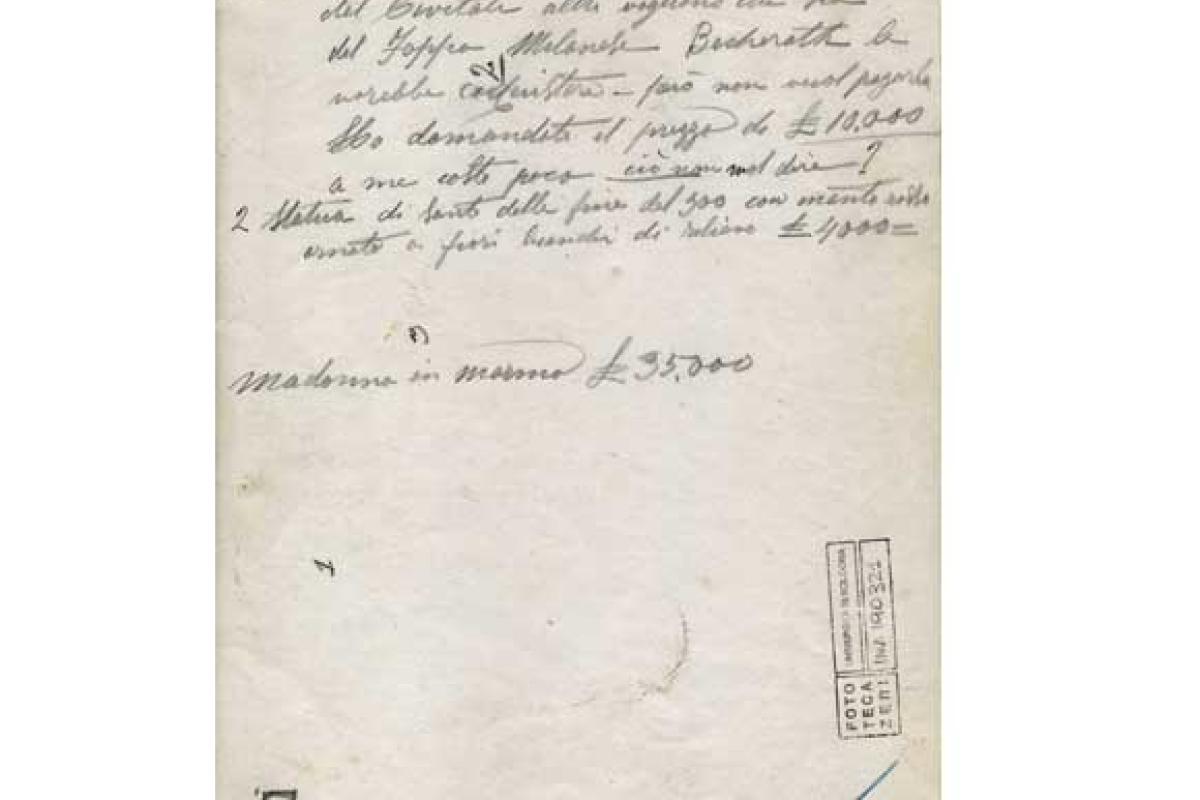 del Civitale altri vogliono che sia
del Foppa Milanese Beckerath la
vorebbe conquistare - però non vuol pagarla
Ho domandato il prezzo di £ 10,000
a me costa poco ciò non vuol dire?
2 Statua di Santo della fine del 500 con manto rosso
ornato a fiori bianchi di relievo £ 4000=
2
3
Madonna in marmo £ 35,000
1
FOTO
TECA
ZERI
UNIVERSITÀ DI BOLOGNA
INV. 190321